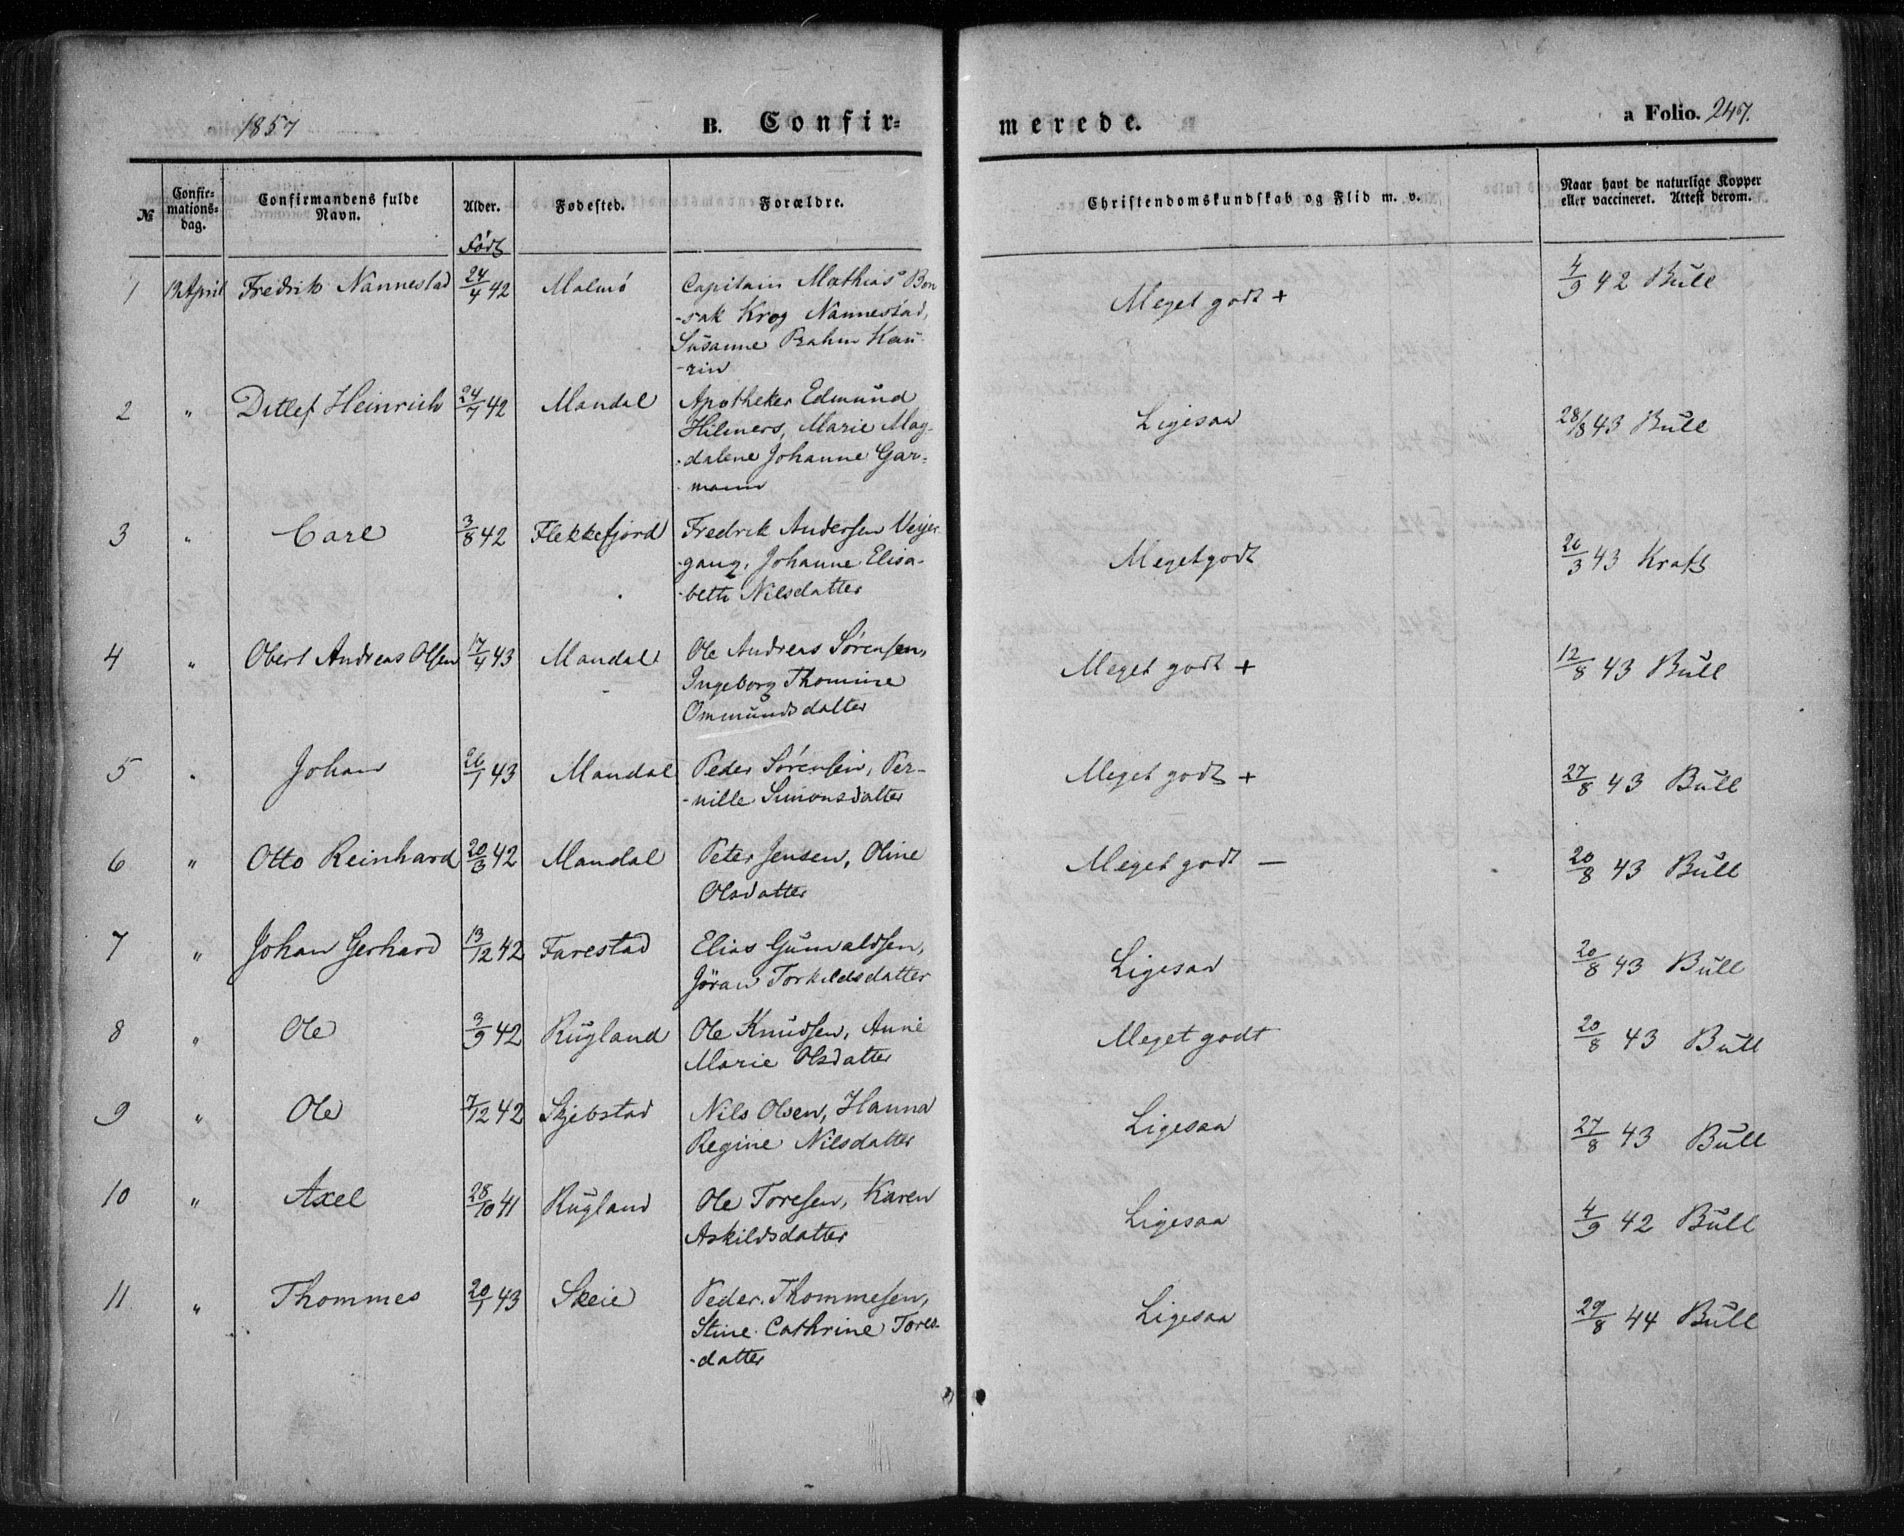 1857 B. Confir- merede. a Folio. 247.
№ Confir-mations-dag. Confirmandens fulde Navn. Alder. Fødested. Forældre. Christendomskundskab og Flid m. v. Naar havt de naturlige Kopper eller vaccineret. Attest derom.
Født
1 April Fredrik Nannestad 24/4 42 Malmø Capitain Mathias Bon- Meget godt + 4/9 42 Bull
-sak Krog Nannestad,
Susanne Brahm Kau-
-rin
2 " Ditlef Heinrich 24/7 42 Mandal Apotheker Edmund Ligesaa 28/8 43 Bull
Hilmers, Marie Mag-
-dalene Johanne Gar-
-mann
3 " Carl 3/8 42 Flekkefjord Fredrik Andersen Vejer- Meget godt 26/3 43 Kraft
-gang, Johanne Elisa-
-beth Nilsdatter
4 " Obert Andreas Olsen 17/4 43 Mandal Ole Andreas Sørensen, Meget godt + 12/8 43 Bull
Ingeborg Thomine
Ommundsdatter
5 " Johan 26/1 43 Mandal Peder Sørensen, Per- Meget godt + 27/8 43 Bull
-nille Simonsdatter
6 " Otto Reinhard 20/3 42 Mandal Peter Jensen, Oline Meget godt — 20/8 43 Bull
Olsdatter
7 " Johan Gerhard 13/12 42 Farestad Elias Gunvaldsen, Ligesaa 20/8 43 Bull
Jøran Torkildsdatter
8 " Ole 3/9 42 Rugland Ole Knudsen, Anne Meget godt 20/8 43 Bull
Marie Olsdatter
9 " Ole 7/12 42 Skjebstad Nils Olsen, Hanna Ligesaa 27/8 43 Bull
Regine Nilsdatter
10 " Axel 28/10 41 Rugland Ole Toresen, Karen Ligesaa 4/9 42 Bull
Askildsdatter
11 " Thommes 20/1 43 Skeie Peder Thommesen, Ligesaa 29/8 44 Bull
Stine Cathrine Tores-
-datter